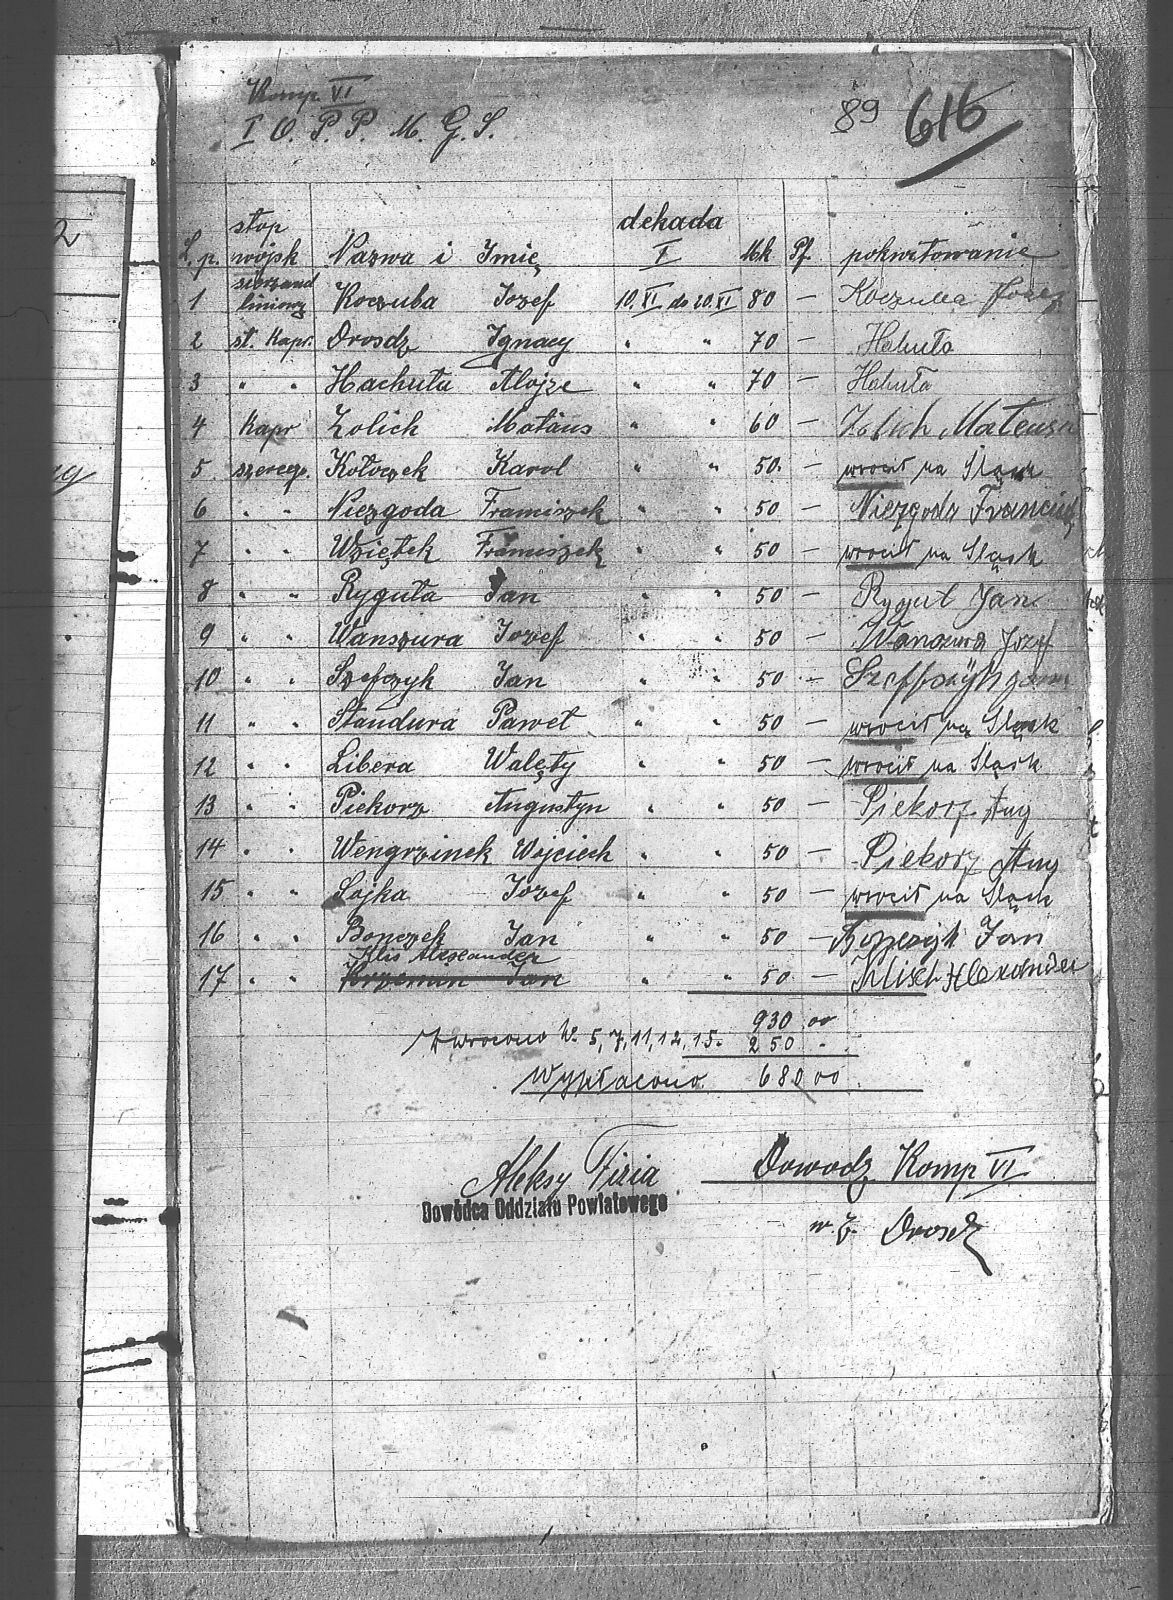 Komp. VI
I O. P. P. M. G. S.
89 616
L. p. stop wojsk Nazwa i Imię dekada I Mk Pf. pokwitowanie
1 sierżand liniowy Koczuba Jozef 10. XI. do 20. XI 80 — Koczuba Jozef
2 st. Kapr. Drosdz Ignacy " " 70 — Hahuła
3 " " Hachuła Alojze " " 70 — Hahuła
4 Kapr Zolich Matäus " " 60 — Zolich Mateusz
5 szereg. Kołoczek Karol " " 50. — wrocił na Śląsk
6 " " Niezgoda Framiszek " " 50 — Niezgoda Franciszek
7 " " Wziętek Framiszek " " 50 — wrocił na Śląsk
8 " " Ryguła Jan " " 50 — Rygul Jan
9 " " Wanszura Jozef " " 50 — Wanzura Jozef
10 " " Szefczyk Jan " " 50 — Szeffczyk Jan
11 " " Standura Paweł " " 50 — wrocił na Śląsk
12 " " Libera Walęty " " 50 — wrocił na Śląsk
13 " " Piekorz Augustyn " " 50 — Piekorz Aug
14 " " Wengrzinek Wojciech " " 50 — Piekorz Aug
15 " " Sojka Jozef " " 50 — wrocił na Śląsk
16 " " Bonczek Jan " " 50 — Jan
Klis Alexander
17 " " Krzemin Jan " " 50 — Klisch Alexander
930 00
Zwrocono N. 5, 7, 11, 12, 15. 250 "
Wypłacono. 680 00
Aleksy Fizia
Dowódca Oddziału Powiatowego
Dowodz Komp VI
w. z. Drosdz